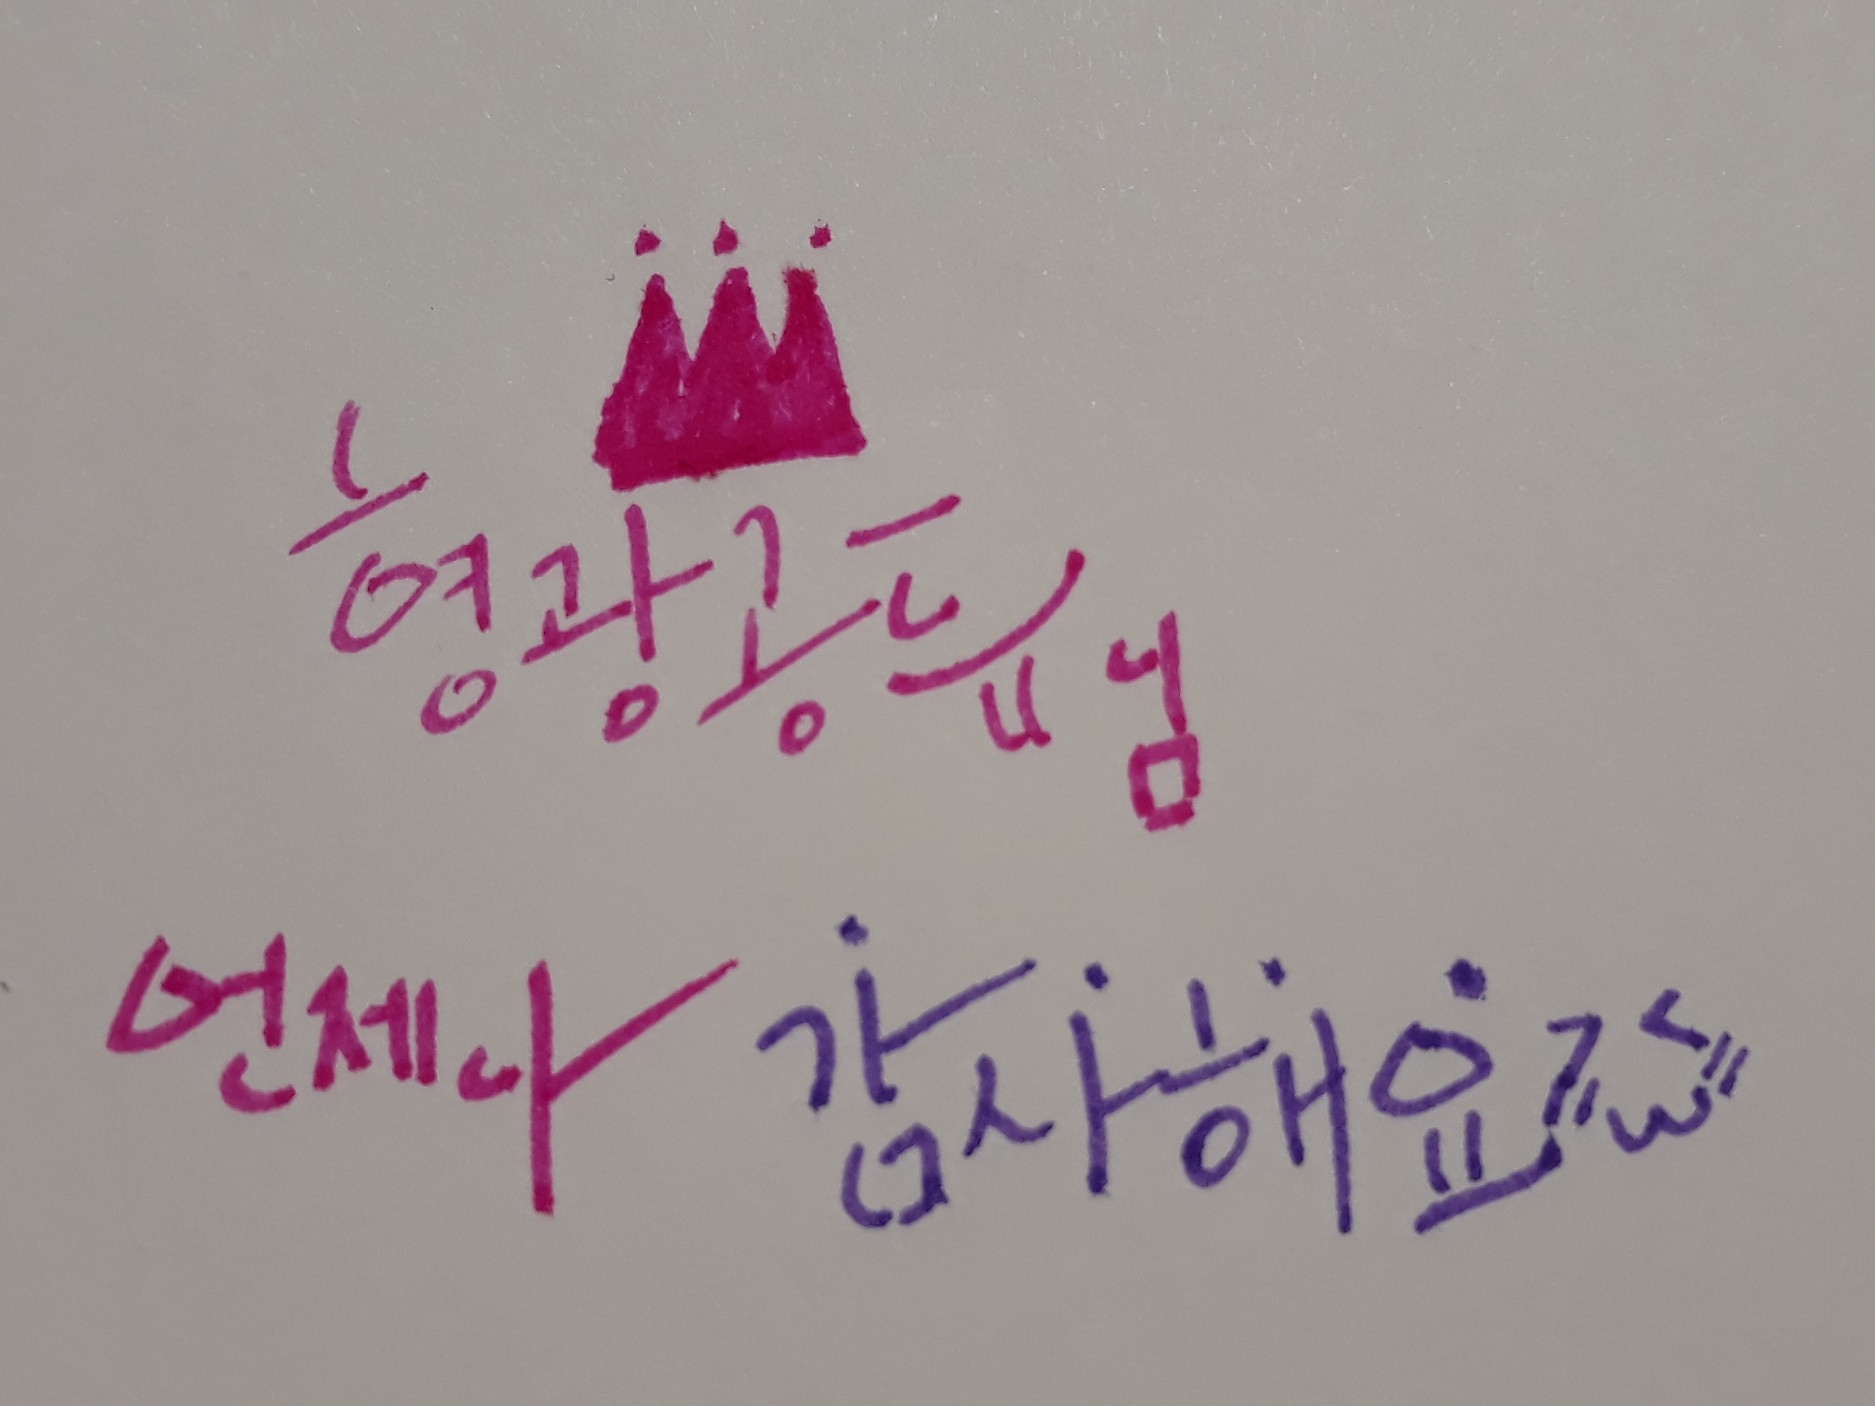 형광공듀님
언제나 감사해요